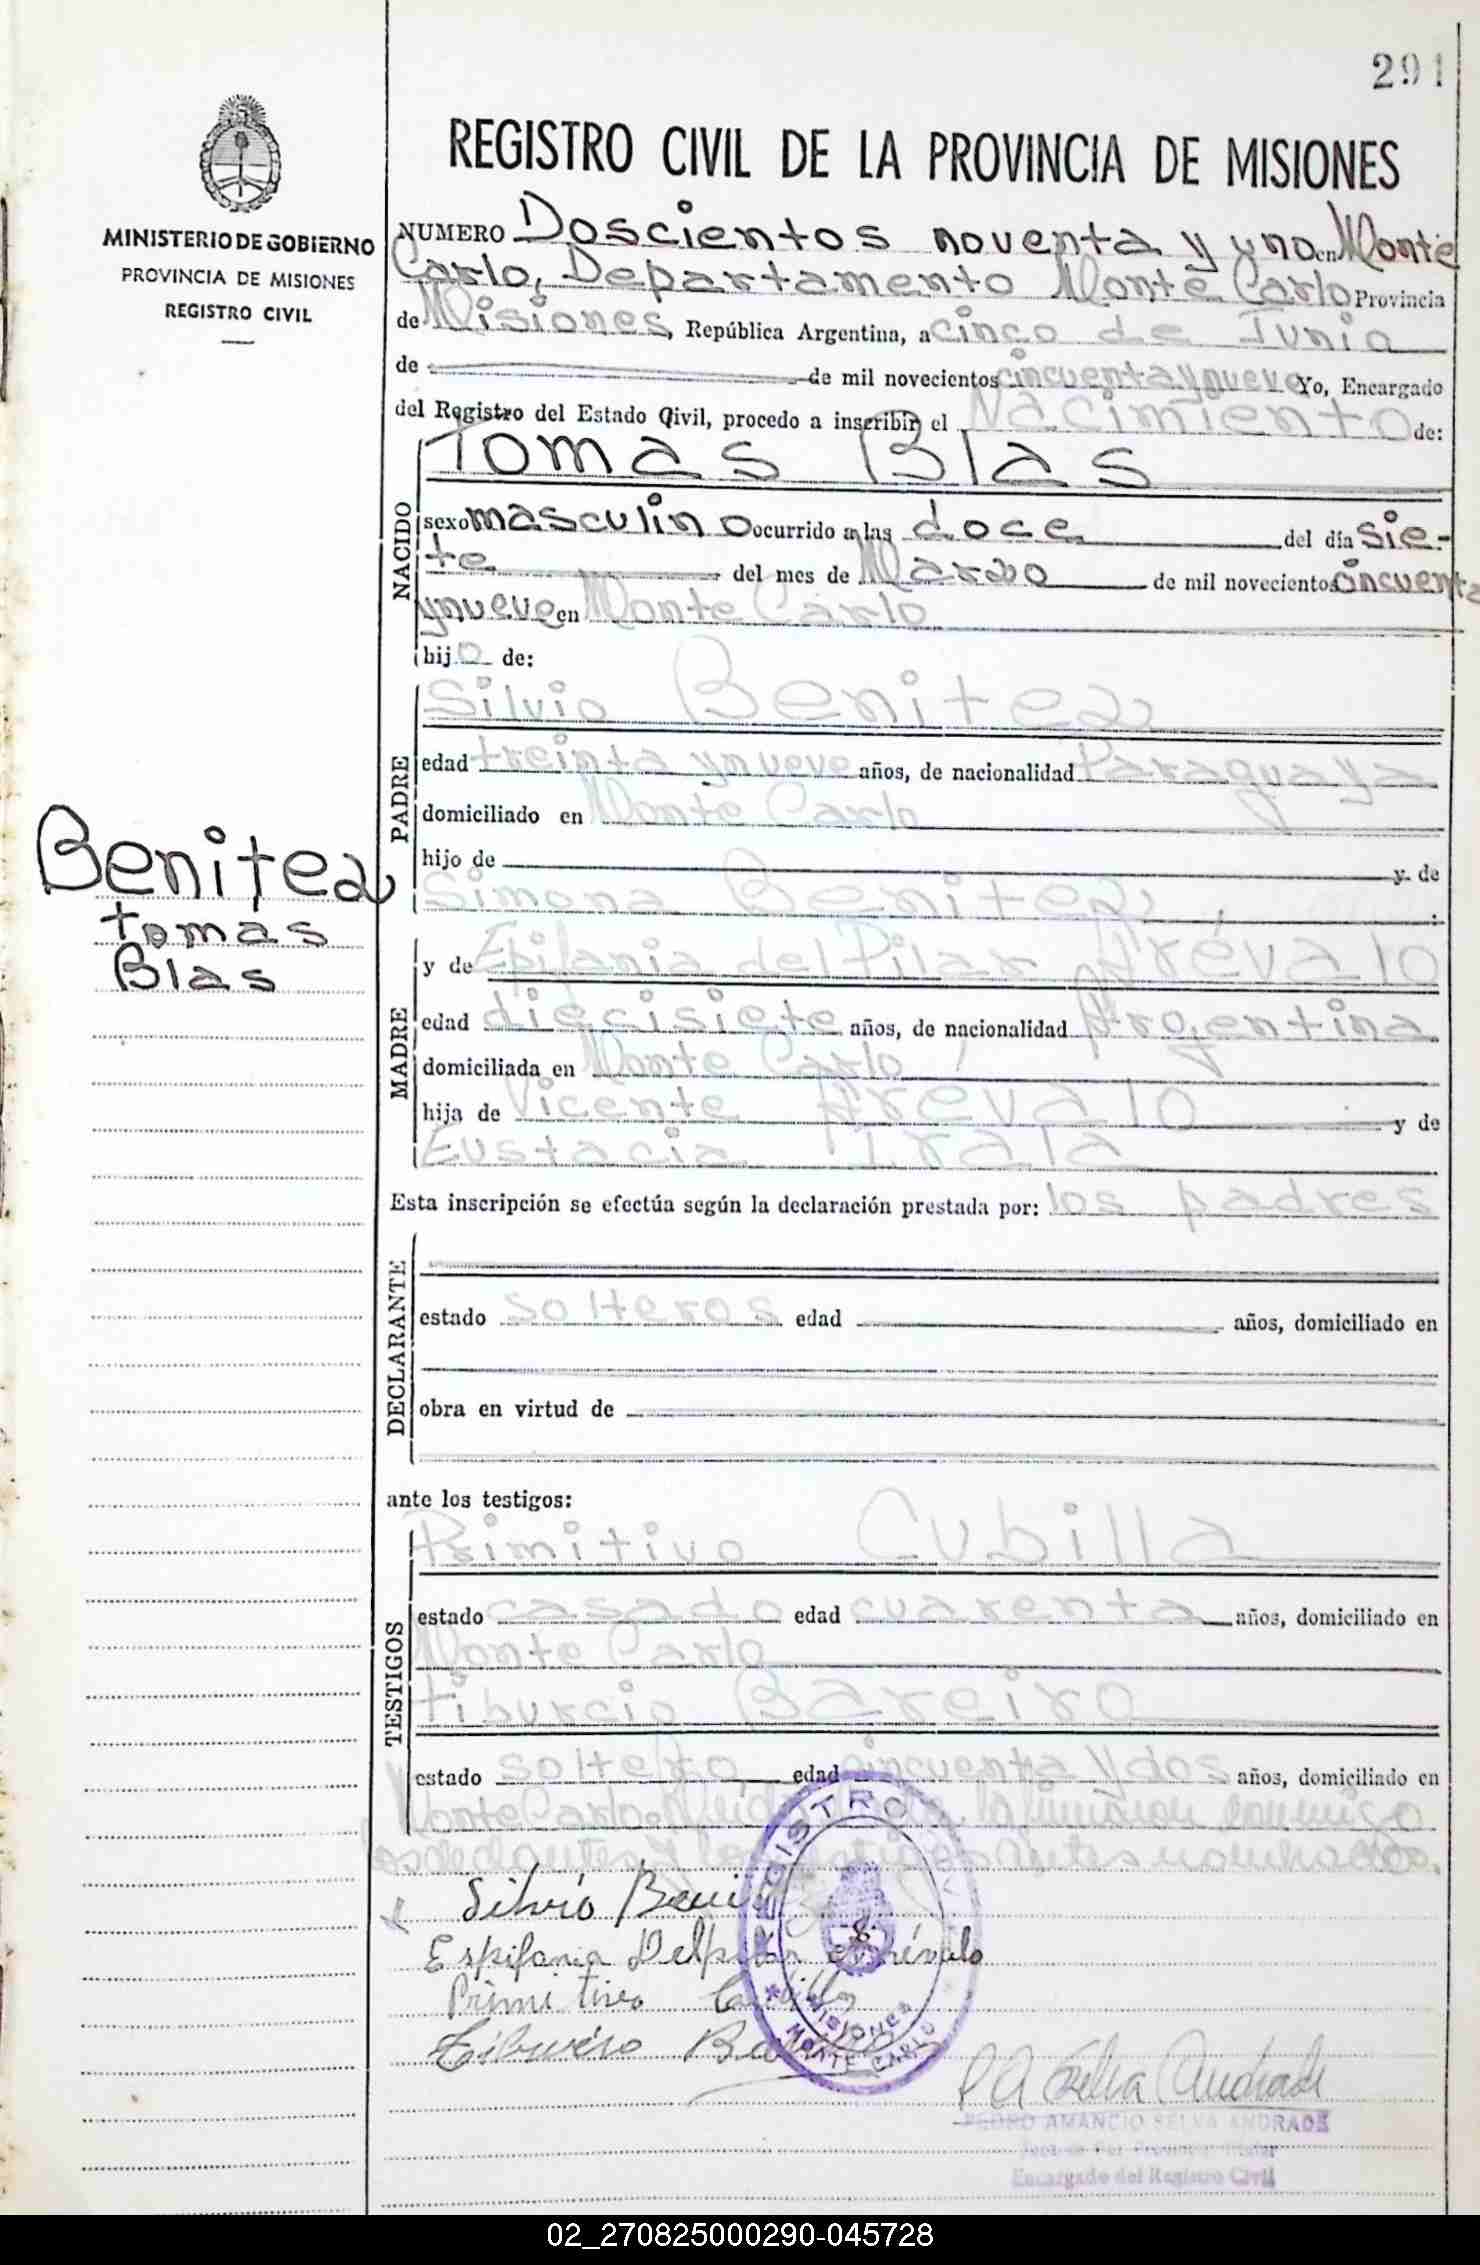 291
MINISTERIO DE GOBIERNO
PROVINCIA DE MISIONES
REGISTRO CIVIL
REGISTRO CIVIL DE LA PROVINCIA DE MISIONES
NUMERO Doscientos noventa y uno en Monte
Carlo, Departamento Monte Carlo Provincia
de Misiones, República Argentina, a cinco de Junio
de de mil novecientos cincuenta y nueve Yo, Encargado
del Registro del Estado Civil, procedo a inscribir el Nacimiento de:
NACIDO
Tomas Blas
sexo masculino ocurrido a las doce del día sie-
te del mes de Marzo de mil novecientos cincuenta
y nueve en Monte Carlo
hijo de:
PADRE
Silvio Benitez
edad treinta y nueve años, de nacionalidad Paraguaya
domiciliado en Monte Carlo
hijo de y de
Simona Benitez
Benitez
tomas
Blas
MADRE
y de Epifania del Pilar Arévalo
edad diecisiete años, de nacionalidad Argentina
domiciliada en Monte Carlo
hija de Vicente Arevalo y de
Eustacia Irala
Esta inscripción se efectúa según la declaración prestada por: los padres
DECLARANTE
estado solteros edad años, domiciliado en
obra en virtud de
ante los testigos:
TESTIGOS
Primitivo Cubilla
estado casado edad cuarenta años, domiciliado en
Monte Carlo
tiburcio Bareiro
estado soltero edad cincuenta y dos años, domiciliado en
Monte Carlo la firman conmigo
Silvio Beni
Espifania Delpilar Arévalo
Primitivo Cubilla
Tiburcio
REGISTRO
MISIONES
MONTE CARLO
P A Selva Andrade
PEDRO AMANCIO SELVA ANDRADE
Encargado del Registro Civil
02_270825000290-045728